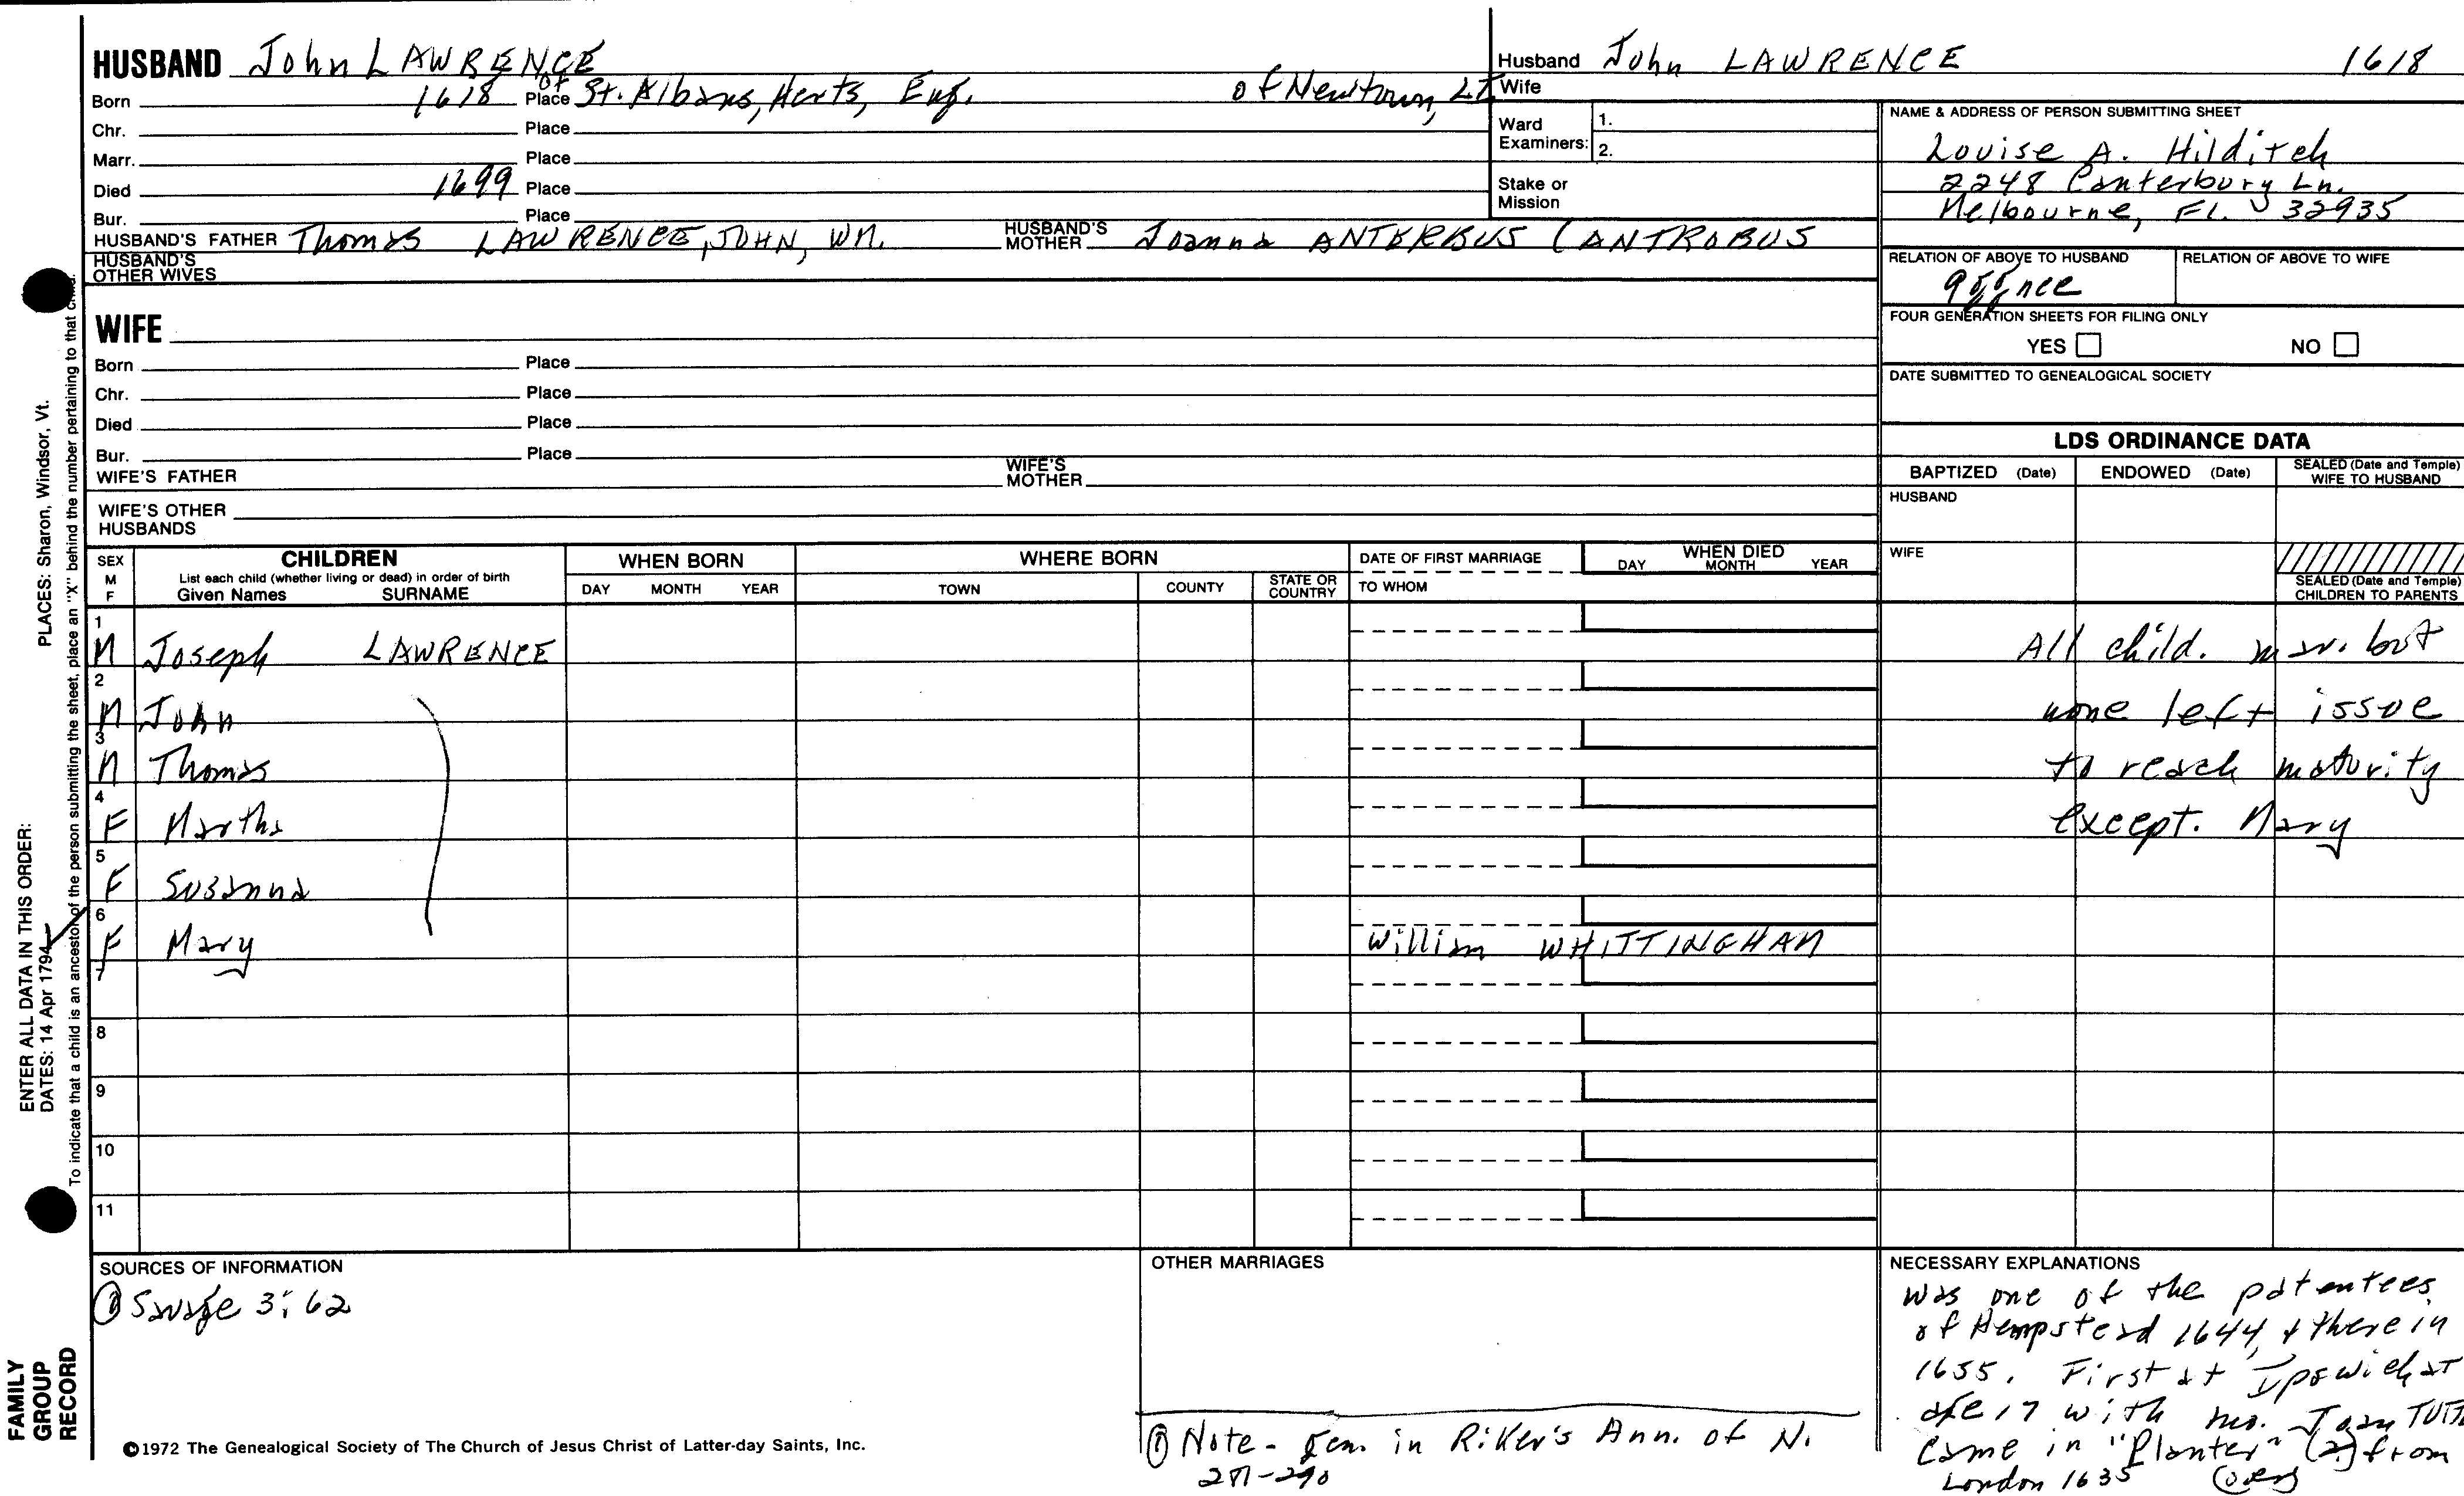 HUSBAND John LAWRENCE
Born 1618 Place of St. Albans, Herts, Eng. of Newtown, LI
Chr. Place
Marr. Place
Died 1699 Place
Bur. Place
HUSBAND'S FATHER Thomas LAWRENCE, JOHN, WM. HUSBAND'S MOTHER Joanna ANTERBUS (ANTROBUS
HUSBAND'S OTHER WIVES
Husband John LAWRENCE 1618
Wife
Ward Examiners: 1.
2.
Stake or Mission
NAME & ADDRESS OF PERSON SUBMITTING SHEET
Louise A. Hilditch
2248 Canterbury Ln.
Melbourne, FL. 32935
RELATION OF ABOVE TO HUSBAND RELATION OF ABOVE TO WIFE
FOUR GENERATION SHEETS FOR FILING ONLY
YES NO
DATE SUBMITTED TO GENEALOGICAL SOCIETY
WIFE
Born Place
Chr. Place
Died Place
Bur. Place
WIFE'S FATHER WIFE'S MOTHER
WIFE'S OTHER HUSBANDS
LDS ORDINANCE DATA
BAPTIZED (Date) ENDOWED (Date) SEALED (Date and Temple) WIFE TO HUSBAND
HUSBAND
WIFE
SEALED (Date and Temple) CHILDREN TO PARENTS
SEX M F CHILDREN WHEN BORN WHERE BORN DATE OF FIRST MARRIAGE WHEN DIED
List each child (whether living or dead) in order of birth
Given Names SURNAME DAY MONTH YEAR TOWN COUNTY STATE OR COUNTRY TO WHOM DAY MONTH YEAR
1 M Joseph LAWRENCE All child. mar. but
2 M John none left issue
3 M Thomas to reach maturity
4 F Martha except. Mary
5 F Susanna
6 F Mary William WHITTINGHAM
7
8
9
10
11
SOURCES OF INFORMATION
① Savage 3:62
OTHER MARRIAGES
① Note - Gen. in Riker's Ann. of N.
NECESSARY EXPLANATIONS
was one of the patentees
of Hempstead 1644, & there in
1655. First at Ipswich at
age 17 with mo. Joan
Came in "Planter" (2) from
London 1635 (over)
©1972 The Genealogical Society of The Church of Jesus Christ of Latter-day Saints, Inc.
FAMILY GROUP RECORD
ENTER ALL DATA IN THIS ORDER:
DATES: 14 Apr 1794 PLACES: Sharon, Windsor, Vt.
To indicate that a child is an ancestor of the person submitting the sheet, place an "X" behind the number pertaining to that child.